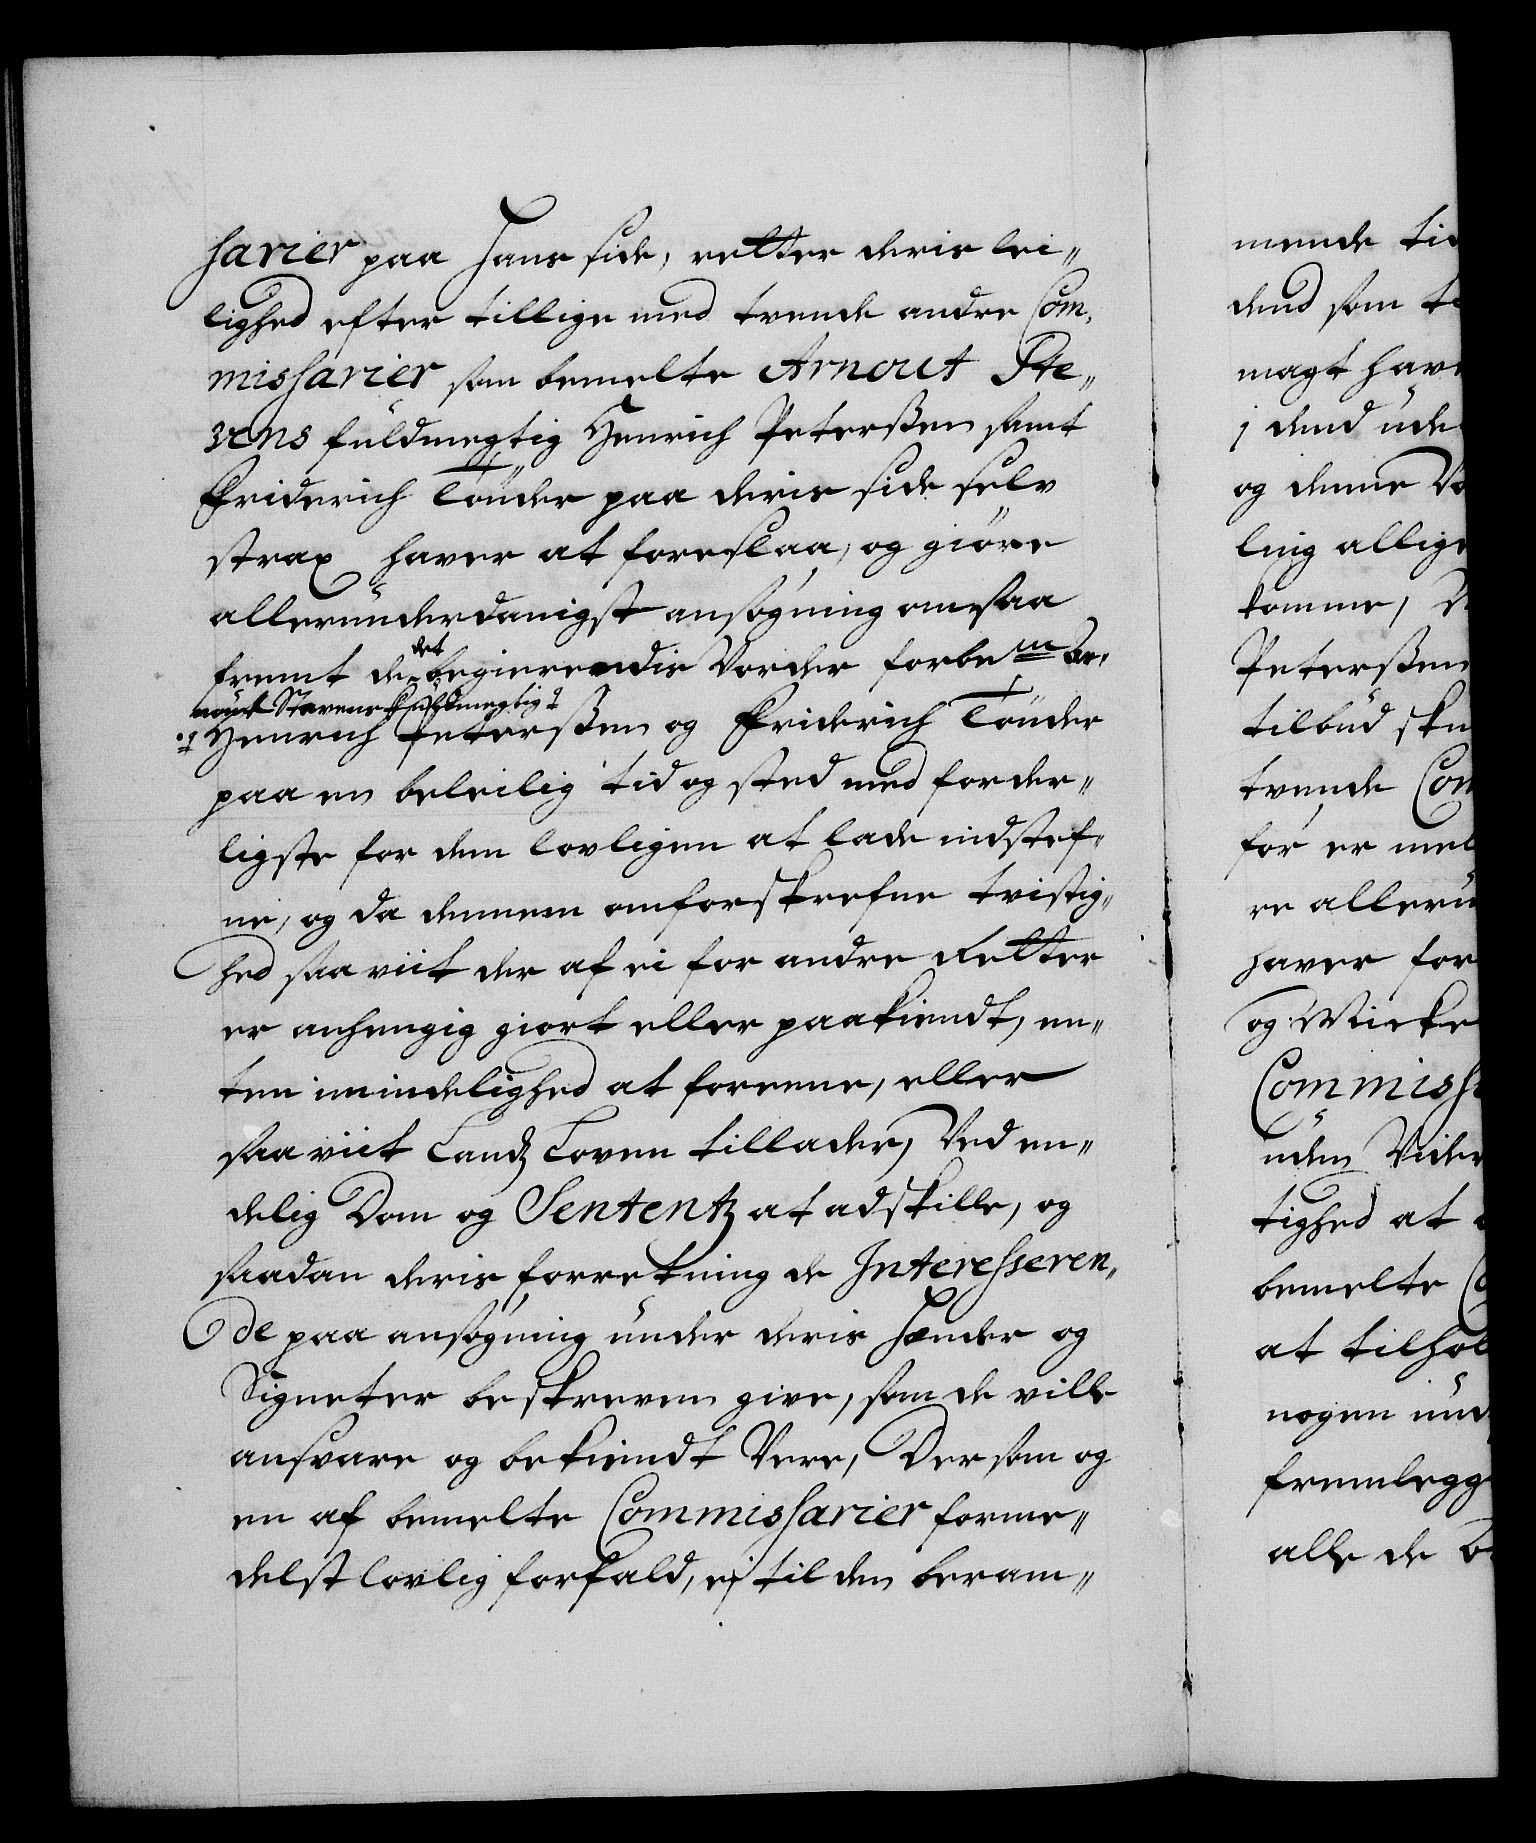 sarier paa Hans side, retter deris lei„
lighed efter tillige med trende andre Com„
missarier som bemelte Arnout Ste„
vens fuldmegtig Henrich Peterssen samt
Friderich Tönder paa deris side selv
strax haver at foreslaa, og giöre
allerunderdanigst ansögning om, saa
fremt de det begierendis Vorder forbem.te Ar„
nout Stevens Fuldmegtig
Henrich Peterssen og Friderich Tönder
paa en beleilig tid og sted med forder„
ligste for dem lovligen at lade indstef„
ne, og da dennem omforskrefne tvistig„
hed saa viit der af ei for andre Retter
er anhengig giort eller paakiendt, en„
ten i mindelighed at foreene, eller
saa viit Landz Loven tillader, Ved en„
delig Dom og Sententz at adskille, og
saadan deris forretning de Interesseren„
de paa ansögning under deris Hender og
Signeter beskreven give, som de ville
ansvare og bekiendt Vere, Dersom og
en af bemelte Commissarier forme„
delst lovlig forfald, ej til den beram„
mende tid
dend som
magt have
i dend ude
og denne
ling allige
komme,
Peterssen
tilbud
trende Com
for er mel
re alleru
haver for
og Virke
Commissa
uden Vider
tighed at
bemelte Co
at tilhol
nogen und
fremlegg
alle de